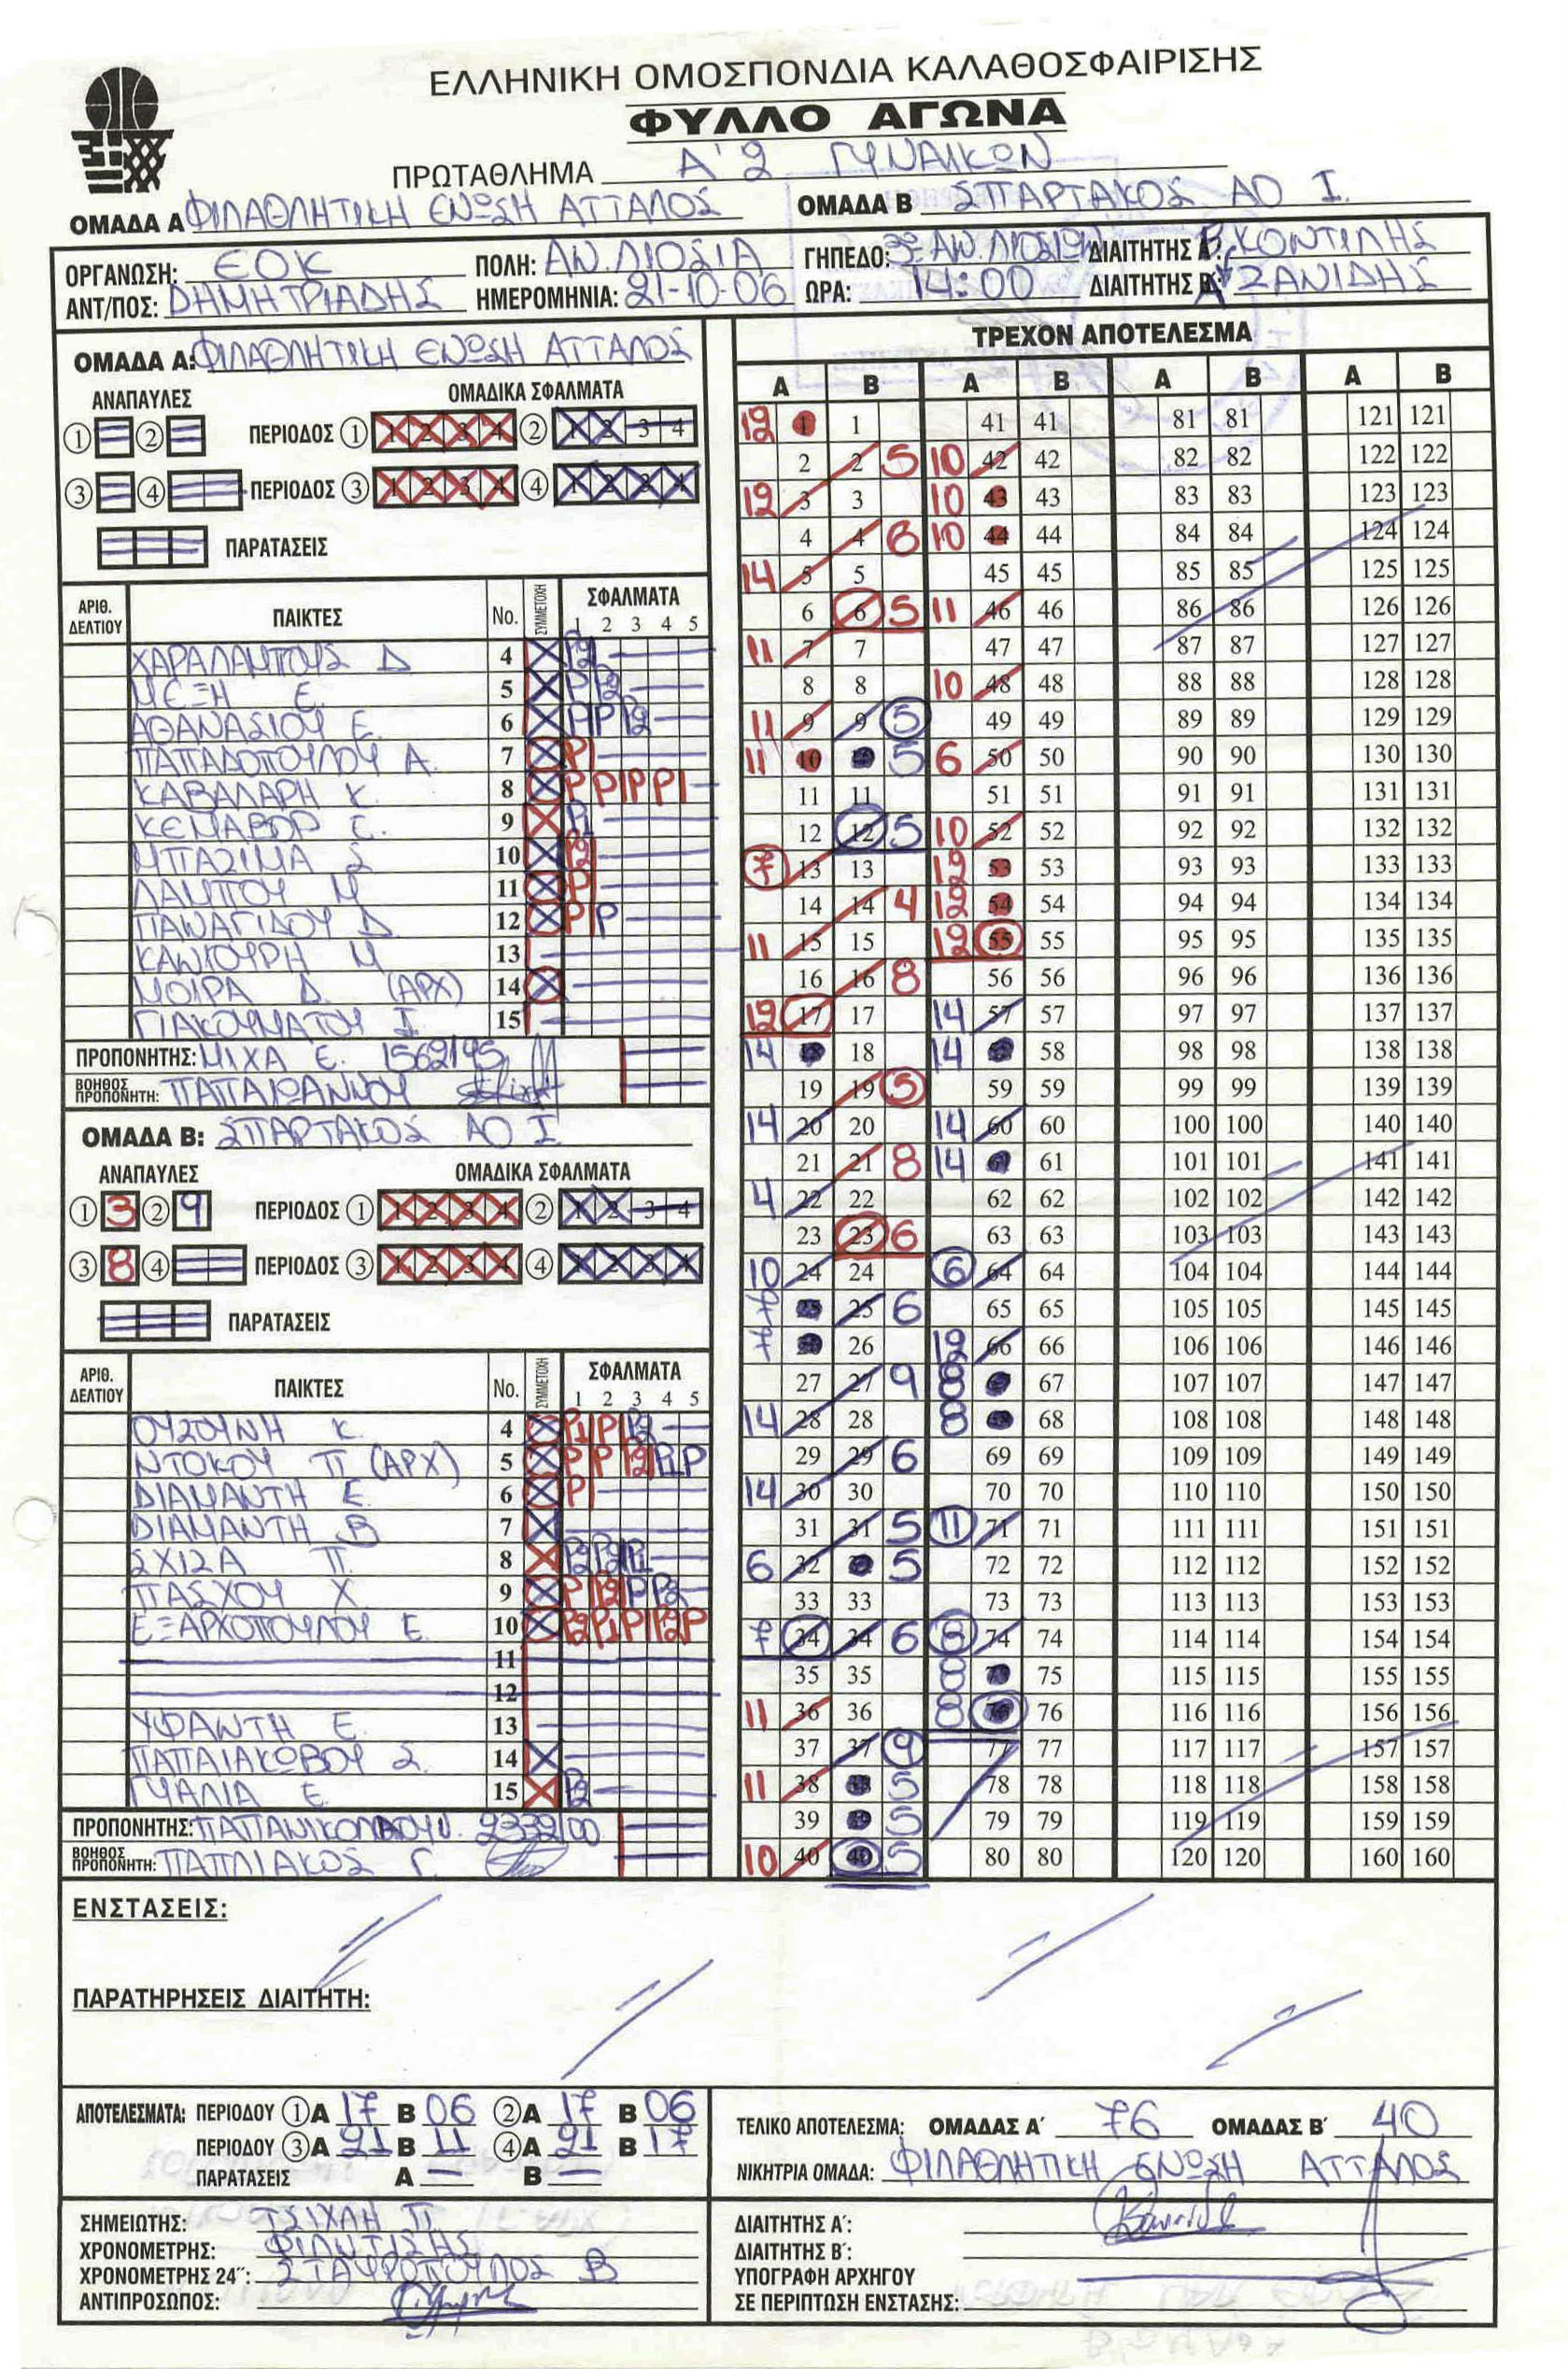 ΕΛΛΗΝΙΚΗ ΟΜΟΣΠΟΝΔΙΑ ΚΑΛΑΘΟΣΦΑΙΡΙΣΗΣ
ΦΥΛΛΟ ΑΓΩΝΑ
ΠΡΩΤΑΘΛΗΜΑ Α'2 ΓΥΝΑΙΚΩΝ
ΟΜΑΔΑ Α ΦΙΛΑΘΛΗΤΙΚΗ ΕΝΩΣΗ ΑΤΤΑΛΟΣ ΟΜΑΔΑ Β ΣΠΑΡΤΑΚΟΣ ΑΟ Ι.
ΟΡΓΑΝΩΣΗ: ΕΟΚ ΠΟΛΗ: ΑΝ.ΛΙΟΣΙΑ ΓΗΠΕΔΟ: 3ο ΑΝ.ΛΙΟΣΙΩΝ ΔΙΑΙΤΗΤΗΣ Α': ΚΟΝΤΙΛΗΣ
ΑΝΤ/ΠΟΣ: ΔΗΜΗΤΡΙΑΔΗΣ ΗΜΕΡΟΜΗΝΙΑ: 21-10-06 ΩΡΑ: 14:00 ΔΙΑΙΤΗΤΗΣ Β': ΖΑΝΙΔΗΣ
ΟΜΑΔΑ Α: ΦΙΛΑΘΛΗΤΙΚΗ ΕΝΩΣΗ ΑΤΤΑΛΟΣ
ΑΝΑΠΑΥΛΕΣ ΟΜΑΔΙΚΑ ΣΦΑΛΜΑΤΑ
1 2 ΠΕΡΙΟΔΟΣ 1 1 2 3 4 2 1 2 3 4
3 4 ΠΕΡΙΟΔΟΣ 3 1 2 3 4 4 1 2 3 4
ΠΑΡΑΤΑΣΕΙΣ
ΑΡΙΘ. ΔΕΛΤΙΟΥ ΠΑΙΚΤΕΣ No. ΣΥΜΜΕΤΟΧΗ ΣΦΑΛΜΑΤΑ 1 2 3 4 5
ΧΑΡΑΛΑΜΠΟΥΣ Δ 4 P2
ΜΕΞΗ Ε. 5 P P2
ΑΘΑΝΑΣΙΟΥ Ε. 6 P P P2
ΠΑΠΑΔΟΠΟΥΛΟΥ Α. 7 P
ΚΑΒΑΛΑΡΗ Κ. 8 P P P P1
ΚΕΝΑΒΟΡ Σ. 9 P1
ΜΠΑΖΙΜΑ Σ 10 P2
ΛΑΜΠΟΥ Μ 11 P
ΠΑΝΑΓΙΔΟΥ Δ. 12 P P
ΚΑΝΙΟΥΡΗ Μ 13
ΜΟΙΡΑ Δ. (ΑΡΧ) 14
ΓΙΑΚΟΥΜΑΤΟΥ Ι 15
ΠΡΟΠΟΝΗΤΗΣ: ΜΙΧΑ Ε. 1562195
ΒΟΗΘΟΣ ΠΡΟΠΟΝΗΤΗ: ΠΑΠΑΙΩΑΝΝΟΥ
ΟΜΑΔΑ Β: ΣΠΑΡΤΑΚΟΣ ΑΟ Ι
ΑΝΑΠΑΥΛΕΣ ΟΜΑΔΙΚΑ ΣΦΑΛΜΑΤΑ
1 3 2 9 ΠΕΡΙΟΔΟΣ 1 1 2 3 4 2 1 2 3 4
3 8 4 ΠΕΡΙΟΔΟΣ 3 1 2 3 4 4 1 2 3 4
ΠΑΡΑΤΑΣΕΙΣ
ΑΡΙΘ. ΔΕΛΤΙΟΥ ΠΑΙΚΤΕΣ No. ΣΥΜΜΕΤΟΧΗ ΣΦΑΛΜΑΤΑ 1 2 3 4 5
ΟΥΖΟΥΝΗ Κ. 4 P1 P P2
ΝΤΟΚΟΥ Π (ΑΡΧ) 5 P P P2 P1 P
ΔΙΑΜΑΝΤΗ Ε. 6 P
ΔΙΑΜΑΝΤΗ Β 7
ΣΧΙΖΑ Π. 8 P2 P2 P1
ΠΑΣΧΟΥ Χ. 9 P P2 P P2
ΕΞΑΡΧΟΠΟΥΛΟΥ Ε. 10 P2 P1 P P2 P
11
12
ΥΦΑΝΤΗ Ε. 13
ΠΑΠΑΙΑΚΩΒΟΥ Σ. 14
ΓΥΑΛΙΑ Ε. 15 P2
ΠΡΟΠΟΝΗΤΗΣ: ΠΑΠΑΝΙΚΟΛΑΟΥ 
ΒΟΗΘΟΣ ΠΡΟΠΟΝΗΤΗ: ΠΑΠΛΙΑΚΟΣ Γ.
ΤΡΕΧΟΝ ΑΠΟΤΕΛΕΣΜΑ
Α Β Α Β Α Β Α Β
12 1 1 41 41 81 81 121 121
2 2 5 10 42 42 82 82 122 122
12 3 3 10 43 43 83 83 123 123
4 4 6 10 44 44 84 84 124 124
14 5 5 45 45 85 85 125 125
6 6 5 11 46 46 86 86 126 126
11 7 7 47 47 87 87 127 127
8 8 10 48 48 88 88 128 128
11 9 9 5 49 49 89 89 129 129
11 10 10 5 6 50 50 90 90 130 130
11 11 51 51 91 91 131 131
12 12 5 10 52 52 92 92 132 132
7 13 13 12 53 53 93 93 133 133
14 14 4 12 54 54 94 94 134 134
11 15 15 12 55 55 95 95 135 135
16 16 8 56 56 96 96 136 136
12 17 17 14 57 57 97 97 137 137
14 18 18 14 58 58 98 98 138 138
19 19 5 59 59 99 99 139 139
14 20 20 14 60 60 100 100 140 140
21 21 8 14 61 61 101 101 141 141
4 22 22 62 62 102 102 142 142
23 23 6 63 63 103 103 143 143
10 24 24 6 64 64 104 104 144 144
7 25 25 6 65 65 105 105 145 145
7 26 26 12 66 66 106 106 146 146
27 27 9 8 67 67 107 107 147 147
14 28 28 8 68 68 108 108 148 148
29 29 6 69 69 109 109 149 149
14 30 30 70 70 110 110 150 150
31 31 5 11 71 71 111 111 151 151
6 32 32 5 72 72 112 112 152 152
33 33 73 73 113 113 153 153
7 34 34 6 6 74 74 114 114 154 154
35 35 8 75 75 115 115 155 155
11 36 36 8 76 76 116 116 156 156
37 37 9 77 77 117 117 157 157
11 38 38 5 78 78 118 118 158 158
39 39 5 79 79 119 119 159 159
10 40 40 5 80 80 120 120 160 160
ΕΝΣΤΑΣΕΙΣ:
ΠΑΡΑΤΗΡΗΣΕΙΣ ΔΙΑΙΤΗΤΗ:
ΑΠΟΤΕΛΕΣΜΑΤΑ: ΠΕΡΙΟΔΟΥ 1 Α 17 Β 06 2 Α 17 Β 06
ΠΕΡΙΟΔΟΥ 3 Α 21 Β 11 4 Α 21 Β 17
ΠΑΡΑΤΑΣΕΙΣ Α — Β —
ΤΕΛΙΚΟ ΑΠΟΤΕΛΕΣΜΑ: ΟΜΑΔΑΣ Α΄ 76 ΟΜΑΔΑΣ Β΄ 40
ΝΙΚΗΤΡΙΑ ΟΜΑΔΑ: ΦΙΛΑΘΛΗΤΙΚΗ ΕΝΩΣΗ ΑΤΤΑΛΟΣ
ΣΗΜΕΙΩΤΗΣ: ΤΣΙΧΛΗ Π
ΧΡΟΝΟΜΕΤΡΗΣ:
ΧΡΟΝΟΜΕΤΡΗΣ 24΄΄: ΣΤΑΥΡΟΠΟΥΛΟΣ Β
ΑΝΤΙΠΡΟΣΩΠΟΣ:
ΔΙΑΙΤΗΤΗΣ Α΄:
ΔΙΑΙΤΗΤΗΣ Β΄:
ΥΠΟΓΡΑΦΗ ΑΡΧΗΓΟΥ
ΣΕ ΠΕΡΙΠΤΩΣΗ ΕΝΣΤΑΣΗΣ: